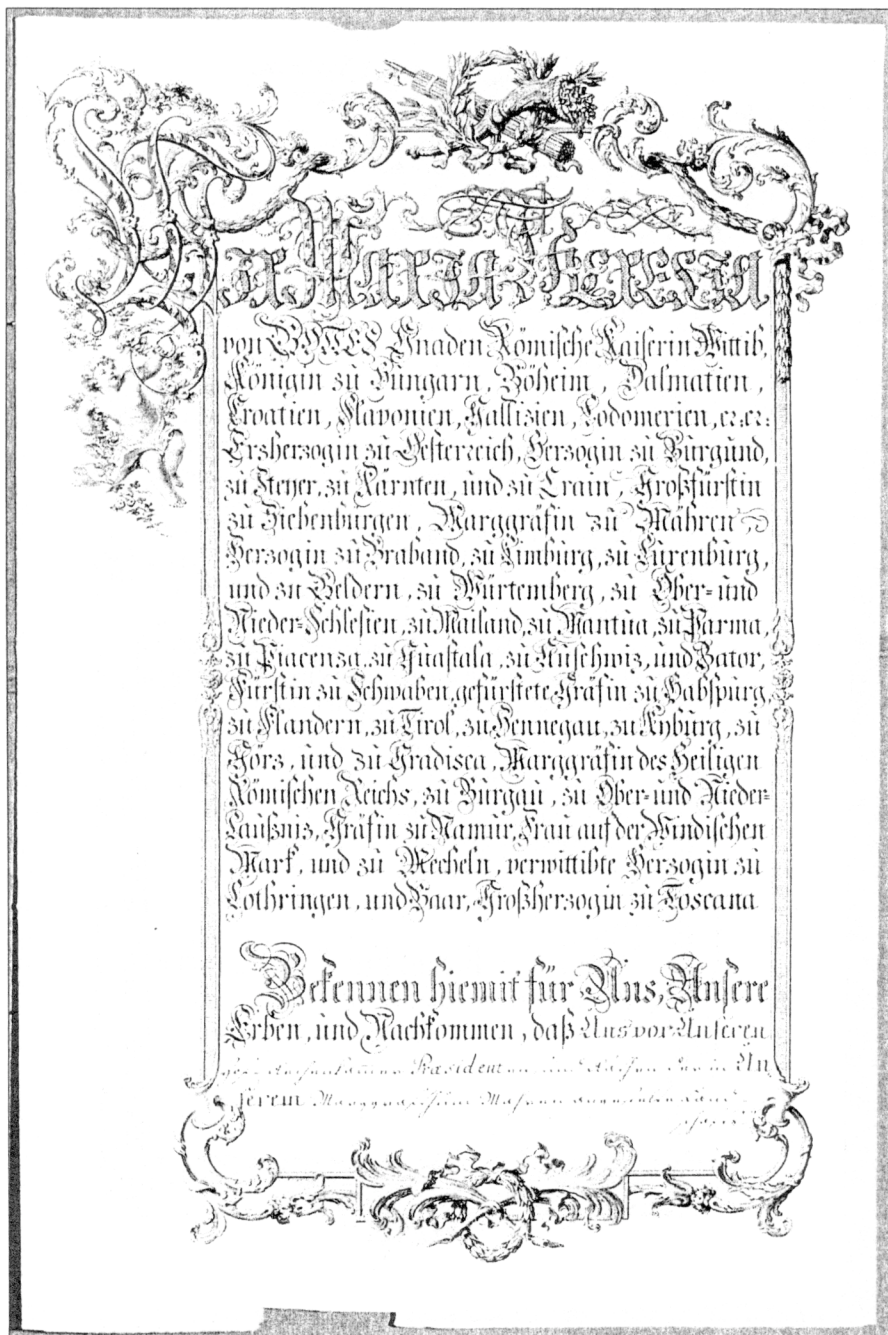 Wir Maria Theresia
von GOTTES Gnaden Römische Kaiserin Wittib,
Königin zu Hungarn, Böheim, Dalmatien,
Croatien, Slavonien, Gallizien, Lodomerien, er: er:
Erzherzogin zu Oesterreich, Herzogin zu Burgund,
zu Steyer, zu Kärnten, und zu Crain, Großfürstin
zu Siebenburgen, Marggräfin zu Mähren
Herzogin zu Braband, zu Limburg, zu Luxenburg,
und zu Geldern, zu Würtemberg, zu Ober- und
Nieder-Schlesien, zu Mailand, zu Mantua, zu Parma,
zu Piacenza, zu Guastala, zu Auschwiz, und Zator,
Fürstin zu Schwaben, gefürstete Gräfin zu Habspurg,
zu Flandern, zu Tirol, zu Hennegau, zu Kyburg, zu
Görz, und zu Gradisca, Marggräfin des Heiligen
Römischen Reichs, zu Burgau, zu Ober- und Nieder-
Laußniz, Gräfin zu Namur, Frau auf der Windischen
Mark, und zu Mecheln, verwittibte Herzogin zu
Lothringen, und Baar, Großherzogin zu Toscana
Bekennen hiemit für Uns, Unsere
Erben, und Nachkommen, daß Uns vor Unseren
Præsidenten und Un
serem